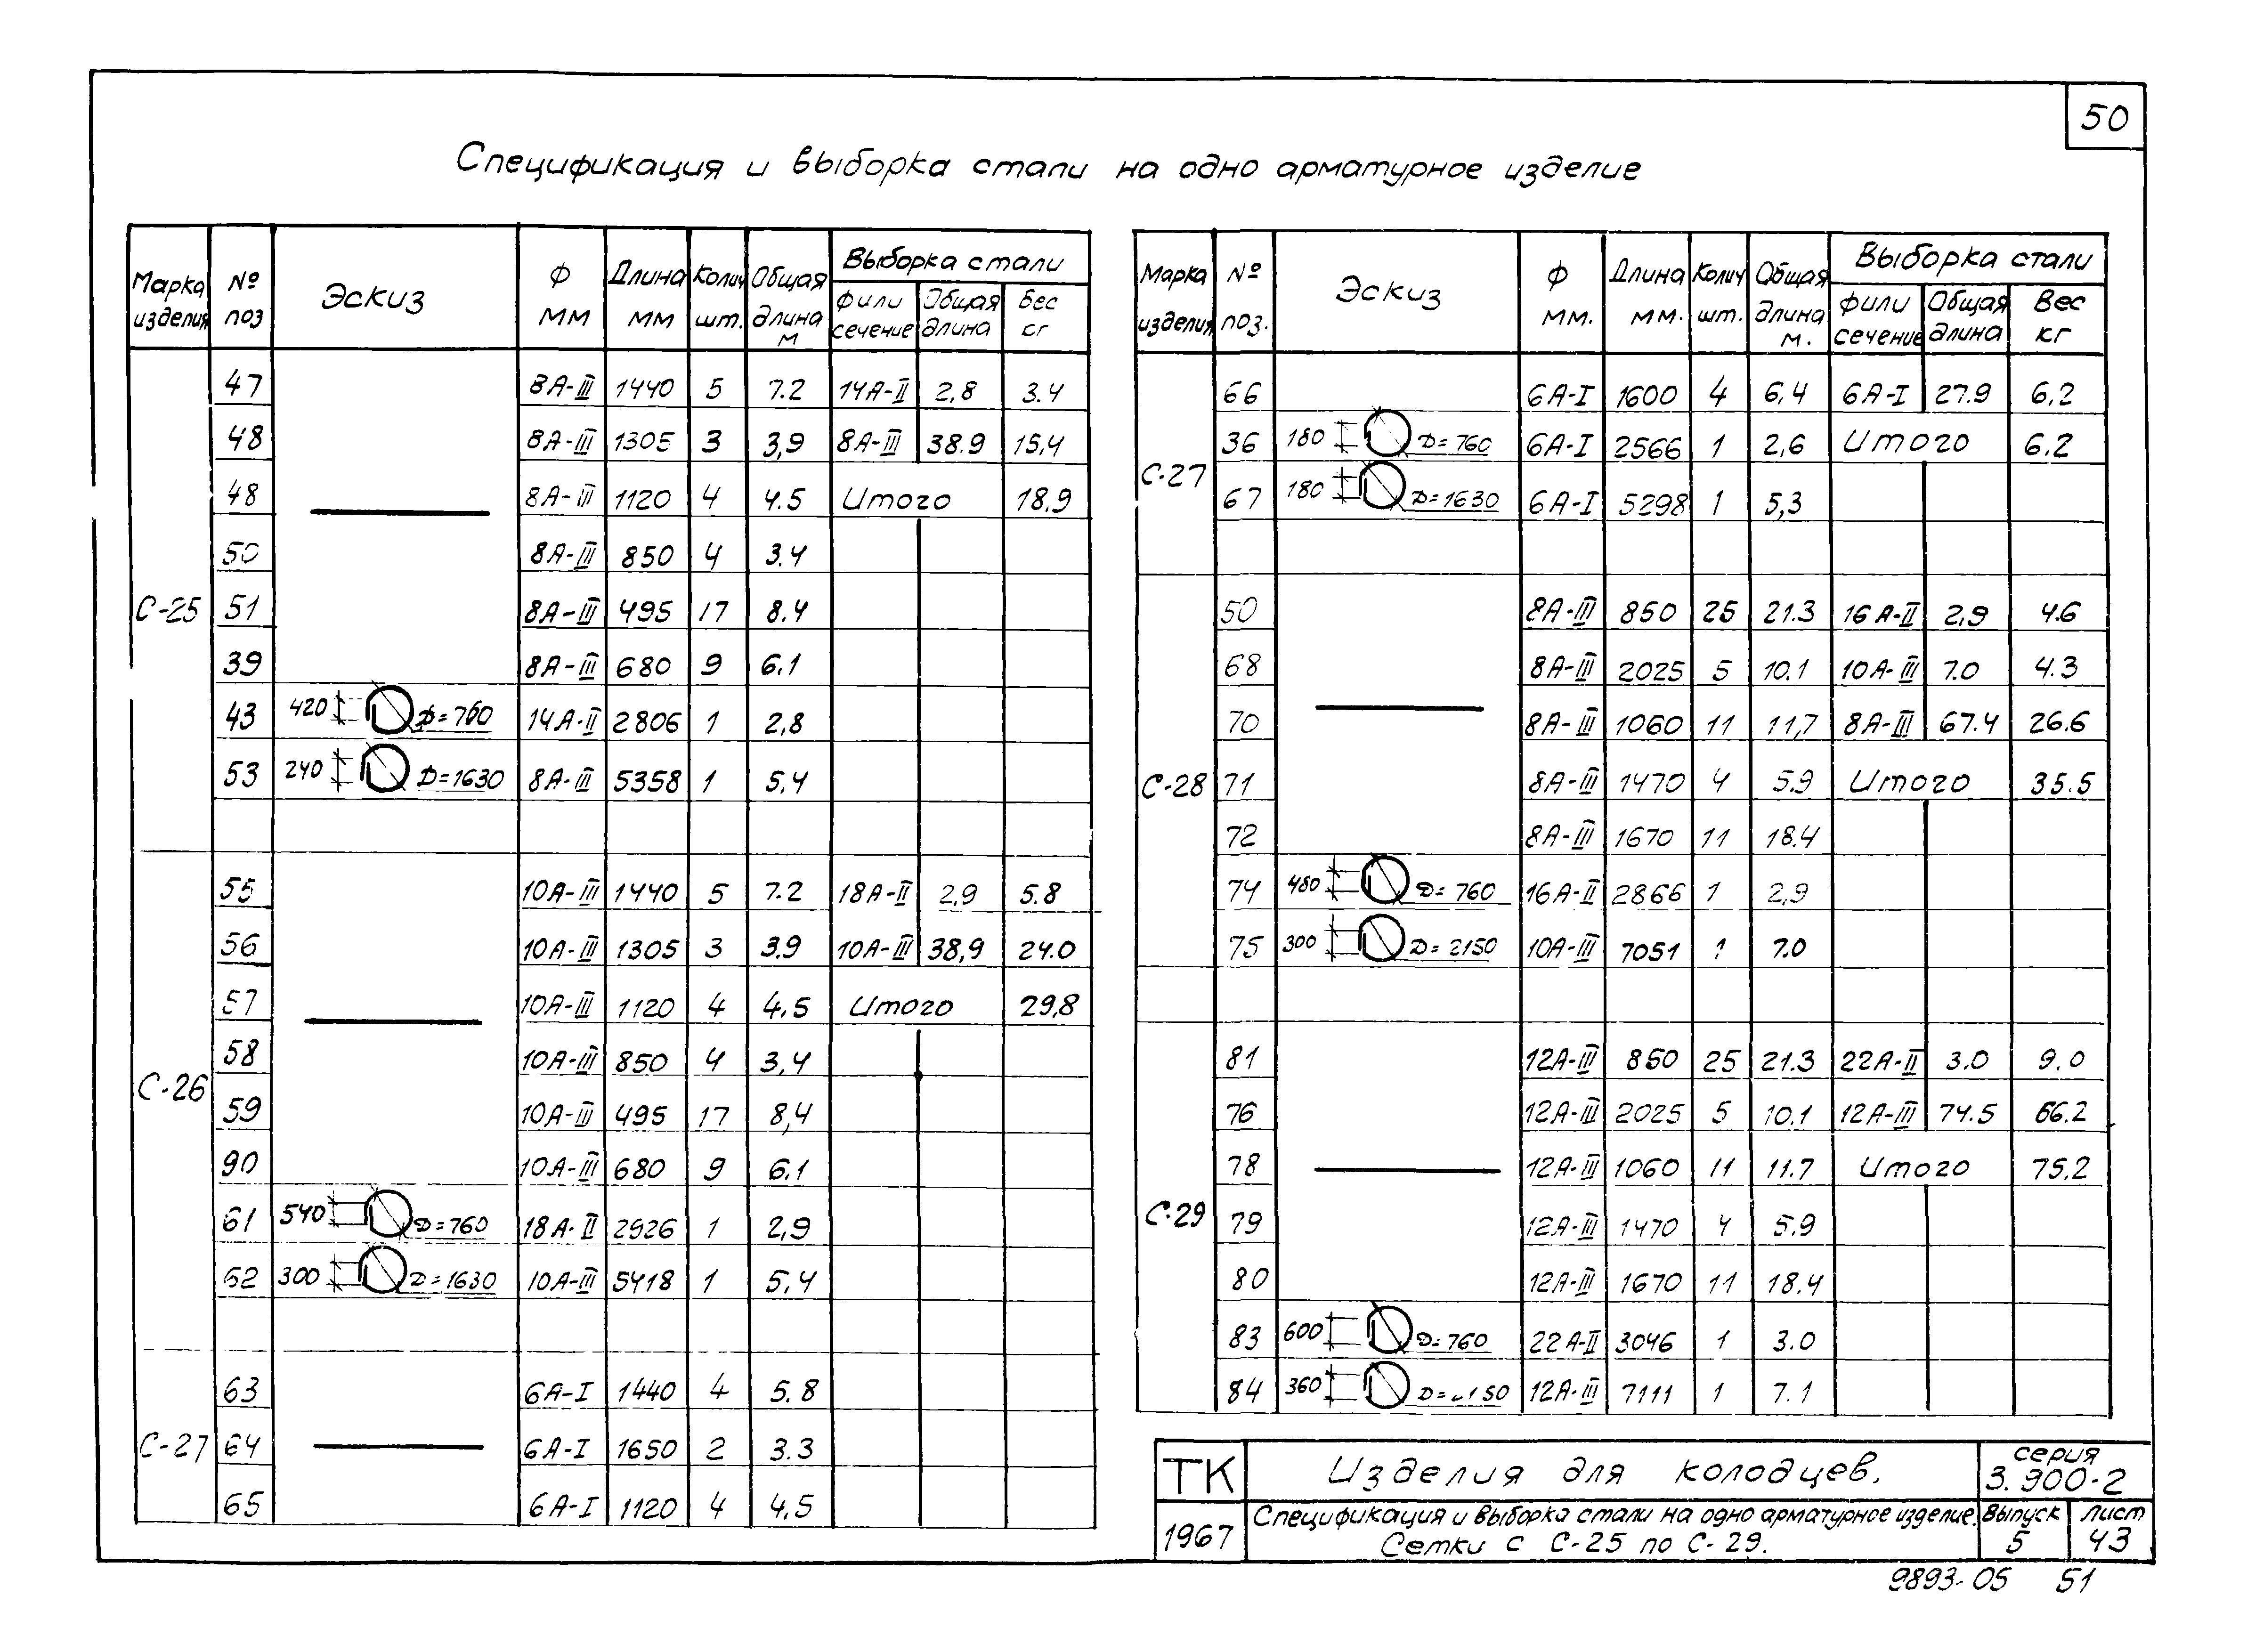 50
Спецификация и выборка стали на одно арматурное изделие
Марка изделия | № поз | Эскиз | Ф мм | Длина мм | Колич шт. | Общая длина м | Выборка стали
Ф или сечение | Общая длина | Вес кг
С-25
47 | 8А-III | 1440 | 5 | 7.2 | 14А-II | 2,8 | 3.4
48 | 8А-III | 1305 | 3 | 3,9 | 8А-III | 38.9 | 15,4
48 | 8А-III | 1120 | 4 | 4.5 | Итого | 18,9
50 | 8А-III | 850 | 4 | 3.4
51 | 8А-III | 495 | 17 | 8.4
39 | 8А-III | 680 | 9 | 6.1
43 | 420 D=760 | 14А-II | 2806 | 1 | 2,8
53 | 240 D=1630 | 8А-III | 5358 | 1 | 5,4
С-26
55 | 10А-III | 1440 | 5 | 7.2 | 18А-II | 2,9 | 5.8
56 | 10А-III | 1305 | 3 | 3.9 | 10А-III | 38,9 | 24.0
57 | 10А-III | 1120 | 4 | 4,5 | Итого | 29,8
58 | 10А-III | 850 | 4 | 3,4
59 | 10А-III | 495 | 17 | 8,4
90 | 10А-III | 680 | 9 | 6.1
61 | 540 D=760 | 18А-II | 2926 | 1 | 2,9
62 | 300 D=1630 | 10А-III | 5418 | 1 | 5,4
С-27
63 | 6А-I | 1440 | 4 | 5.8
64 | 6А-I | 1650 | 2 | 3.3
65 | 6А-I | 1120 | 4 | 4,5
Марка изделия | № поз. | Эскиз | Ф мм. | Длина мм. | Колич шт. | Общая длина м. | Выборка стали
Ф или сечение | Общая длина | Вес кг
С-27
66 | 6А-I | 1600 | 4 | 6,4 | 6А-I | 27.9 | 6,2
36 | 180 D=760 | 6А-I | 2566 | 1 | 2,6 | Итого | 6.2
67 | 180 D=1630 | 6А-I | 5298 | 1 | 5,3
С-28
50 | 8А-III | 850 | 25 | 21.3 | 16А-II | 2,9 | 4.6
68 | 8А-III | 2025 | 5 | 10.1 | 10А-III | 7.0 | 4.3
70 | 8А-III | 1060 | 11 | 11,7 | 8А-III | 67.4 | 26.6
71 | 8А-III | 1470 | 4 | 5.9 | Итого | 35.5
72 | 8А-III | 1670 | 11 | 18.4
74 | 480 D=760 | 16А-II | 2866 | 1 | 2,9
75 | 300 D=2150 | 10А-III | 7051 | 1 | 7.0
С-29
81 | 12А-III | 850 | 25 | 21.3 | 22А-II | 3.0 | 9.0
76 | 12А-III | 2025 | 5 | 10.1 | 12А-III | 74.5 | 66.2
78 | 12А-III | 1060 | 11 | 11.7 | Итого | 75,2
79 | 12А-III | 1470 | 4 | 5.9
80 | 12А-III | 1670 | 11 | 18.4
83 | 600 D=760 | 22А-II | 3046 | 1 | 3.0
84 | 360 | 12А-III | 7111 | 1 | 7.1
ТК | Изделия для колодцев. | серия 3.900-2
1967 | Спецификация и выборка стали на одно арматурное изделие. | Выпуск 5 | Лист 43
Сетки с С-25 по С-29.
9893-05 51